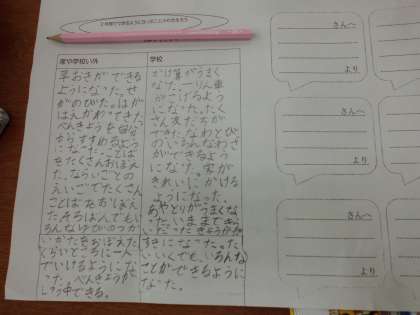 2年間でできるようになったことをかきだそう
家や学校い外
早おきができる
ようになった。せ
がのびた。はが
はえかわってきた。
べんきょうを自分
からすすめるよう
になった。ことば
をたくさんおぼえ
た。ならいごとの
えいごでたくさん
ことばをおぼえ
た。そろばんでもい
ろんな
いかたをおぼえた
くらいところに一人
でいけるようにな
った。べんきょうが
中できる。
学校
かけ算がうまく
なった。一りん車
が
になった。たく
さん友だちが
できた。なわとび
のいろんなわざ
ができるよう
になった。字が
きれいにかける
ようになった。
あやとりがうまくな
った。いままできら
いだった
すきになった。た
いいくでも、いろんな
ことができるように
なった。
さんへ
より
さんへ
より
さんへ
より